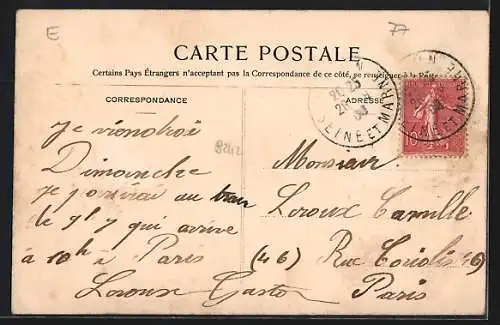 E
77
CARTE POSTALE
Certains Pays Étrangers n'acceptant pas la Correspondance de ce côté, se renseigner à la Poste
CORRESPONDANCE
ADRESSE
SEINE ET MARNE
SEINE ET MARNE
10
8242
Je viendrai
Dimanche
je partirai au train
de 9h 7 qui arrive
à 10h à Paris
Leroux Gaston
Monsieur
Leroux Camille
(46) Rue Coriolis 46)
Paris